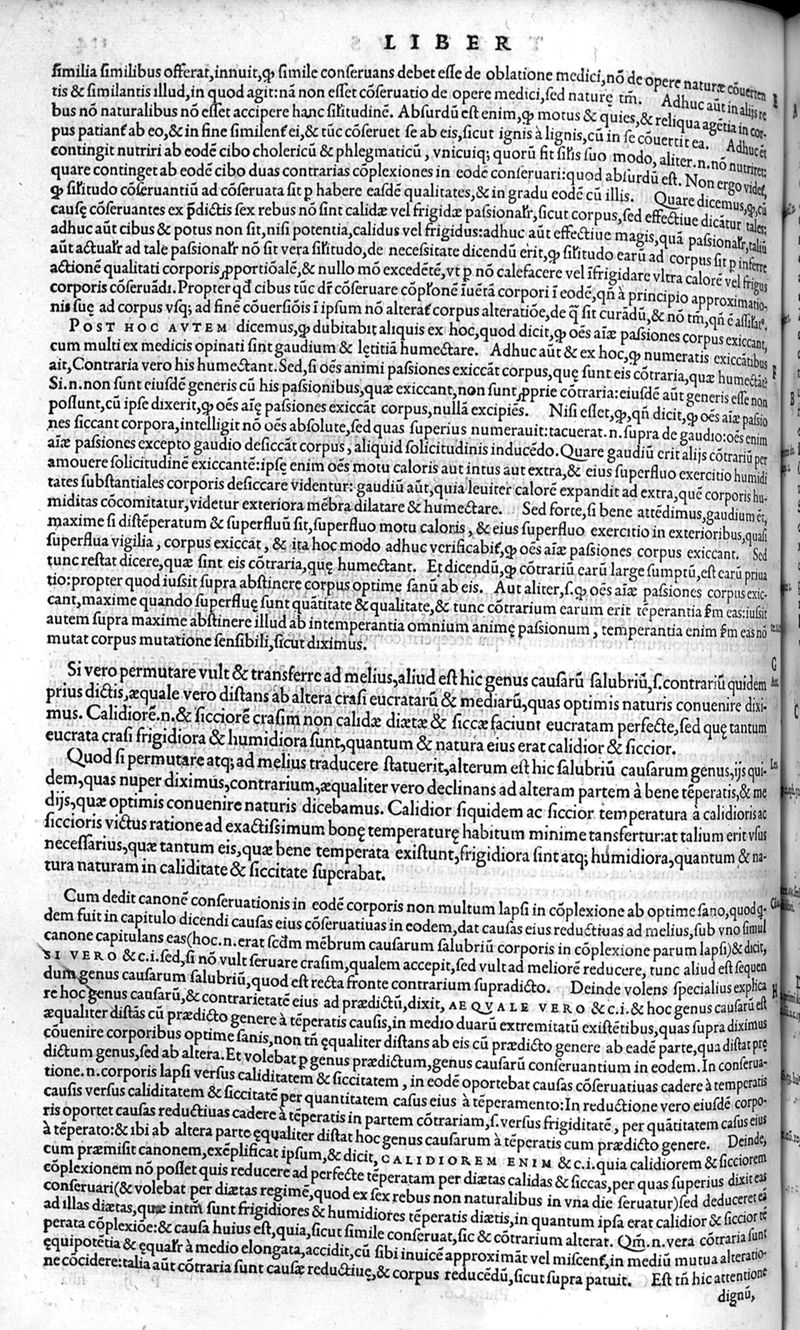 LIBER
similia similibus offerat, innuit, ꝙ simile conseruans debet esse de oblatione medici, nõ de opere naturæ cõuerten
tis & similantis illud, in quod agit: nã non esset cõseruatio de opere medici, sed nature tm̃. Adhuc aũt in alijs re
bus nõ naturalibus nõ esset accipere hanc sil̃itudinẽ. Absurdũ est enim, ꝙ motus & quies, & reliqua agẽtia in cor-
pus patianť ab eo, & in fine similenť ei, & tũc cõseruet se ab eis, sicut ignis à lignis, cũ in se cõuertit ea. Adhuc et
contingit nutriri ab eodẽ cibo cholericũ & phlegmaticũ, vnicuiq; quorũ fit sil̃is suo modo, aliter .n. nõ nutriret:
quare continget ab eodẽ cibo duas contrarias cõplexiones in eodẽ conseruari: quod absurdũ est. Non ergo videť,
ꝙ sil̃itudo cõseruantiũ ad cõseruata sit p habere easdẽ qualitates, & in gradu eodẽ cũ illis. Quare dicemus, ꝙ, cũ
causę cõseruantes ex p̃dictis sex rebus nõ sint calidæ vel frigidæ passional̃r, sicut corpus, sed effectiue dicãtur tales:
adhuc aũt cibus & potus non sit, nisi potentia, calidus vel frigidus: adhuc aũt effectiue magis, quã passional̃r, taliũ
aũt actual̃r ad tale passional̃r nõ sit vera sil̃itudo, de necessitate dicendũ erit, ꝙ sil̃itudo earũ ad corpus sit p inferre
actionẽ qualitati corporis ꝓportiõalẽ, & nullo mõ excedẽtẽ, vt p nõ calefacere vel ĩfrigidare vltra calorẽ vel frigus
corporis cõseruãdi. Propter qd̃ cibus tũc dr̃ cõseruare cõpl̃onẽ ĩuẽtã corpori ĩ eodẽ, qñ à principio approximatio-
nis suę ad corpus vsq; ad finẽ cõuersiõis ĩ ipsum nõ alterať corpus alteratiõe, de q̃ sit curãdũ, & nõ tm̃, qñ ẽ assilať.
POST HOC AVTEM dicemus, ꝙ dubitabit aliquis ex hoc, quod dicit, ꝙ oẽs aĩæ passiones corpus exiccant,
cum multi ex medicis opinati sint gaudium & lętitiã humectare. Adhuc aũt & ex hoc, ꝙ numeratis exiccãtibus
ait, Contraria vero his humectant. Sed, si oẽs animi passiones exiccãt corpus, quę sunt eis cõtraria, quæ humectãt?
Si .n. non sunt eiusdẽ generis cũ his passionibus, quæ exiccant, non sunt ꝓprie cõtraria: eiusdẽ aũt generis esse non
possunt, cũ ipse dixerit, ꝙ oẽs aĩę passiones exiccãt corpus, nullã excipiẽs. Nisi esset, ꝙ, qñ dicit, ꝙ oẽs aĩæ passio
nes siccant corpora, intelligit nõ oẽs absolute, sed quas superius numerauit: tacuerat .n. supra de gaudio: oẽs enim
aĩæ passiones excepto gaudio desiccãt corpus, aliquid solicitudinis inducẽdo. Quare gaudiũ erit alijs cõtrariũ per
amouere solicitudinẽ exiccantẽ: ipsę enim oẽs motu caloris aut intus aut extra, & eius superfluo exercitio humidi
tates substantiales corporis desiccare videntur: gaudiũ aũt, quia leuiter calorẽ expandit ad extra, quẽ corporis hu-
miditas cõcomitatur, videtur exteriora mẽbra dilatare & humectare. Sed forte, si bene attẽdimus, gaudium eť,
maxime si distẽperatum & superfluũ sit, superfluo motu caloris, & eius superfluo exercitio in exterioribus, quasi
superflua vigilia, corpus exiccať, & ita hoc modo adhuc verificabiť, ꝙ oẽs aĩæ passiones corpus exiccant. Sed
tunc restat dicere, quæ sint eis cõtraria, quę humectant. Et dicendũ, ꝙ cõtrariũ earũ large sumptũ, est earũ priua
tio: propter quod iussit supra abstinere corpus optime sanũ ab eis. Aut aliter, s. ꝙ oẽs aĩæ passiones corpus exic-
cant, maxime quando superfluę sunt quãtitate & qualitate, & tunc cõtrarium earum erit tẽperantia ẽm eas: iussit
autem supra maxime abstinere illud ab intemperantia omnium animę passionum, temperantia enim ẽm eas nõ
mutat corpus mutatione sensibili, sicut diximus.
Si vero permutare vult & transferre ad melius, aliud est hic genus causarũ salubriũ, s. contrariũ quidem
prius dictis, æquale vero distans ab altera crasi eucratarũ & mediarũ, quas optimis naturis conuenire dixi-
mus. Calidiorẽ .n. & sicciorẽ crasim non calidæ diætæ & siccæ faciunt eucratam perfecte, sed quę tantum
eucrata crasi frigidiora & humidiora sunt, quantum & natura eius erat calidior & siccior.
Quod si permutare atq; ad melius traducere statuerit, alterum est hic salubriũ causarum genus, ijs qui-
dem, quas nuper diximus, contrarium, æqualiter vero declinans ad alteram partem à bene tẽperatis, & me
dijs, quæ optimis conuenire naturis dicebamus. Calidior siquidem ac siccior temperatura à calidioris ac
siccioris victus ratione ad exactissimum bonę temperaturę habitum minime tansfertur: at talium erit vsus
necessarius, quæ tantum eis, quæ bene temperata existunt, frigidiora sint atq; humidiora, quantum & na-
tura naturam in caliditate & siccitate superabat.
Cum dedit canonẽ conseruationis in eodẽ corporis non multum lapsi in cõplexione ab optime sano, quod q-
dem fuit in capitulo dicendi causas eius cõseruatiuas in eodem, dat causas eius reductiuas ad melius, sub vno simul
canone capitulans eas (hoc .n. erat scd̃m mẽbrum causarum salubriũ corporis in cõplexione parum lapsi) & dicit,
SI VERO & c.i. sed, si nõ vult seruare crasim, qualem accepit, sed vult ad meliorẽ reducere, tunc aliud est sequen
dum genus causarum salubriũ, quod est recta fronte contrarium supradicto. Deinde volens specialius explica
re hoc genus causarũ, & contrarietatẽ eius ad prædictũ, dixit, AEQVALE VERO & c.i. & hoc genus causarũ est
æqualiter distãs cũ prædicto genere à tẽperatis causis, in medio duarũ extremitatũ existẽtibus, quas supra diximus
cõuenire corporibus optime sanis, non tm̃ ęqualiter distans ab eis cũ prædicto genere ab eadẽ parte, qua distat prę
dictum genus, sed ab altera. Et volebat p genus prædictum, genus causarũ conseruantium in eodem. In conserua-
tione .n. corporis lapsi versus caliditatem & siccitatem, in eodẽ oportebat causas cõseruatiuas cadere à temperatis
causis versus caliditatem & siccitatẽ per quantitatem casus eius à tẽperamento: In reductione vero eiusdẽ corpo-
ris oportet causas reductiuas cadere à tẽperatis in partem cõtrariam, s. versus frigiditatẽ, per quãtitatem casus eius
à tẽperato: & ibi ab altera parte ęqualiter distat hoc genus causarum à tẽperatis cum prædicto genere. Deinde,
cum præmisit canonem, exẽplificat ipsum, & dicit, CALIDIOREM ENIM & c.i. quia calidiorem & sicciorem
cõplexionem nõ posset quis reducere ad perfecte tẽperatam per diætas calidas & siccas, per quas superius dixit eas
conseruari (& volebat per diætas regimẽ, quod ex sex rebus non naturalibus in vna die seruatur) sed deduceret eã
ad illas diætas, quæ intm̃ sunt frigidiores & humidiores tẽperatis diætis, in quantum ipsa erat calidior & siccior tẽ
perata cõplexiõe: & causa huius est, quia, sicut simile conseruat, sic & cõtrarium alterat. Qm̃ .n. vera cõtraria sunt
ęquipotẽtia & ęqual̃r à medio elongata, accidit, cũ sibi inuicẽ approximãť vel miscenť, in mediũ mutua alteratio-
ne cõcidere: talia aũt cõtraria sunt causæ reductiuę, & corpus reducẽdũ, sicut supra patuit. Est tñ hic attentione
dignũ,